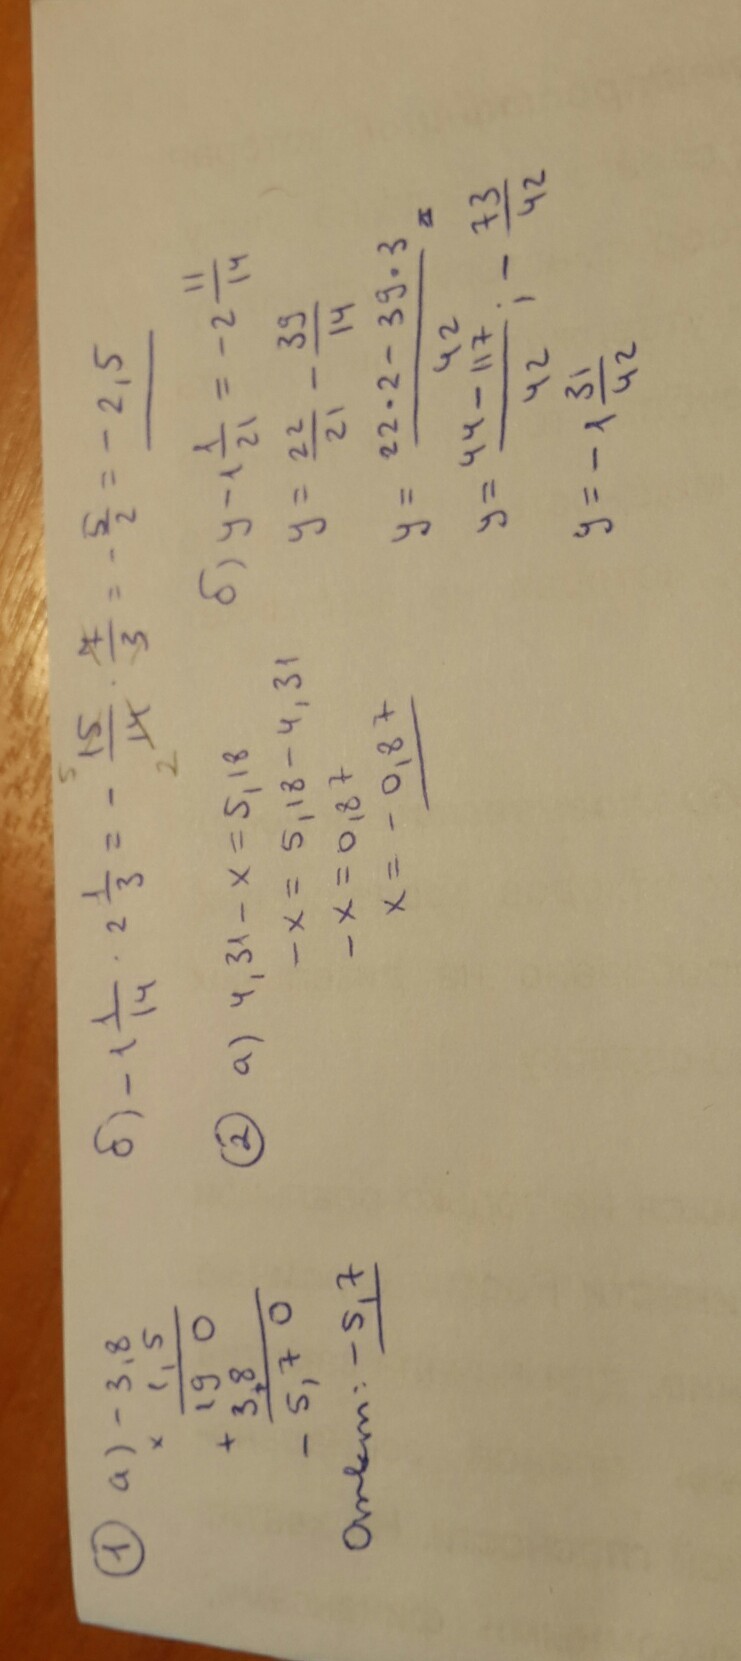 1 а) - 3,8
× 1,5
19 0
+ 3,8
- 5,7 0
Ответ: - 5,7
б) - 1 1/14 · 2 1/3 = - 15/14 · 7/3 = - 5/2 = - 2,5
5
2
2 а) 4,31 - x = 5,18
- x = 5,18 - 4,31
- x = 0,87
x = - 0,87
б) y - 1 1/21 = - 2 11/14
y = 22/21 - 39/14
y = 22·2 - 39·3/42 =
y = 44 - 117/42 ; - 73/42
y = - 1 31/42